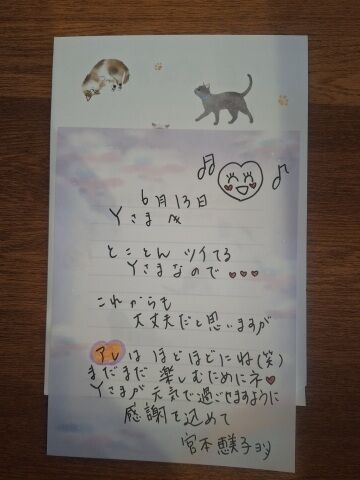 6月13日
Yさまへ
とことん ツイてる
Yさまなので♥♥♥
これからも
大丈夫だと思いますが
アレは ほどほどにね(笑)
まだまだ 楽しむためにネ♥
Yさまが元気で過ごせますように
感謝を込めて
宮本恵美子より